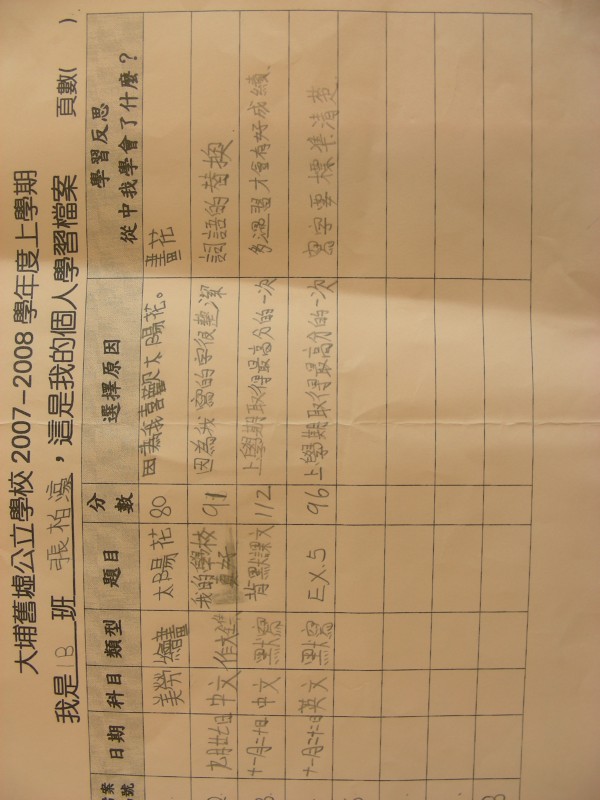 大埔舊墟公立學校 2007-2008 學年度上學期
我是 1B 班 張柏濠，這是我的個人學習檔案 頁數( )
日期 科目 類型 題目 分數 選擇原因 學習反思 從中我學會了什麼？
美勞 繪畫 太陽花 80 因為我喜歡太陽花。 畫花
九月廿七日 中文 作文 我的學校 91 因為我寫的字很整潔 詞語的替換
十一月二十日 中文 默寫 背默課文 112 上學期取得最高分的一次 多溫習才會有好成績。
十一月二十二日 英文 默寫 EX.5 96 上學期取得最高分的一次 寫字要標準清楚